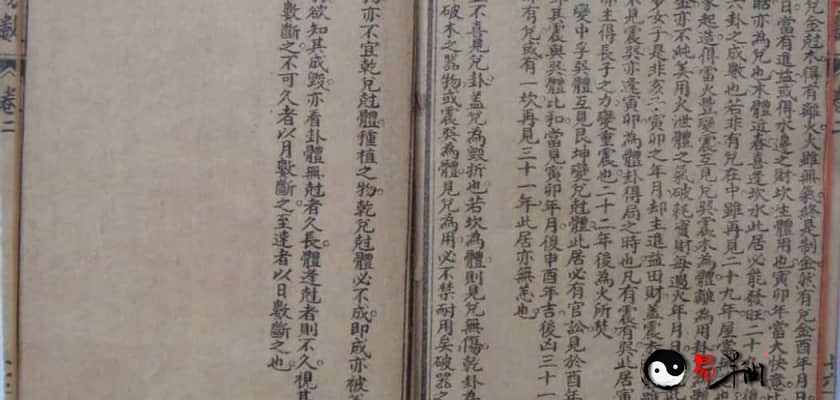 兄金尅木得有離火火雖無氣終是制金然有兌金酉年月日
日當有進益或得水邊之財坎生體用也寅卯年當大快意比
啓亦為兌也木體近春喜逢坎水此居必能發旺二十
六卦之成數也若非有兌在中雖再見二十九年屋當
家起造得當火豐變震互見兌巽震木為體離為用卦
金亦不純美用火泄體之氣破耗資財每遇火年月日
多女子是非亥子寅卯之年月却主進益田財蓋震木
不見震巽亦逢寅卯為體卦得局之時也凡有震有巽此居
亦主得長子之力變重震也二十二年後為火所焚
變中孚巽體互見艮坤變兌尅體此居必有官訟見於酉年
其震與巽體比和當見寅卯年月後申酉年吉後凶三十一
亦有兌或有一坎再見三十一年此居亦無恙也
上不喜見兌卦蓋兌為毀折也若坎為體則見兌無傷乾卦為
破木之器物或震巽為體見兌為用必不禁耐用矣破器之
物亦不宜乾兌尅體種植之物乾兌尅體必不成即成亦被
欲知其成毀亦看卦體無尅者久長體逢尅者則不久視其
數斷之不可久者以月數斷之至速者以日數斷之也
卷二
易